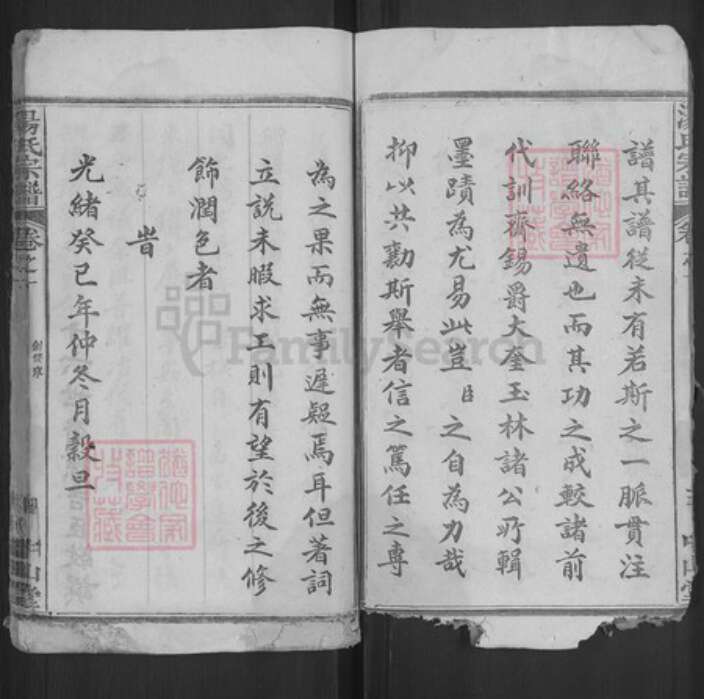 譜其譜從未有若斯之一脈貫注
聯絡無遺也而其功之成較諸前
代訓齋錫爵大奎玉林諸公所輯
墨蹟為尤易此豈 㠯 之自為力哉
抑以共勷斯舉者信之篤任之專
為之果而無事遲疑焉耳但著詞
立說未暇求工則有望於後之修
飾潤色者
旹
光緒癸巳年仲冬月穀旦
湯氏宗譜
中山堂
FamilySearch